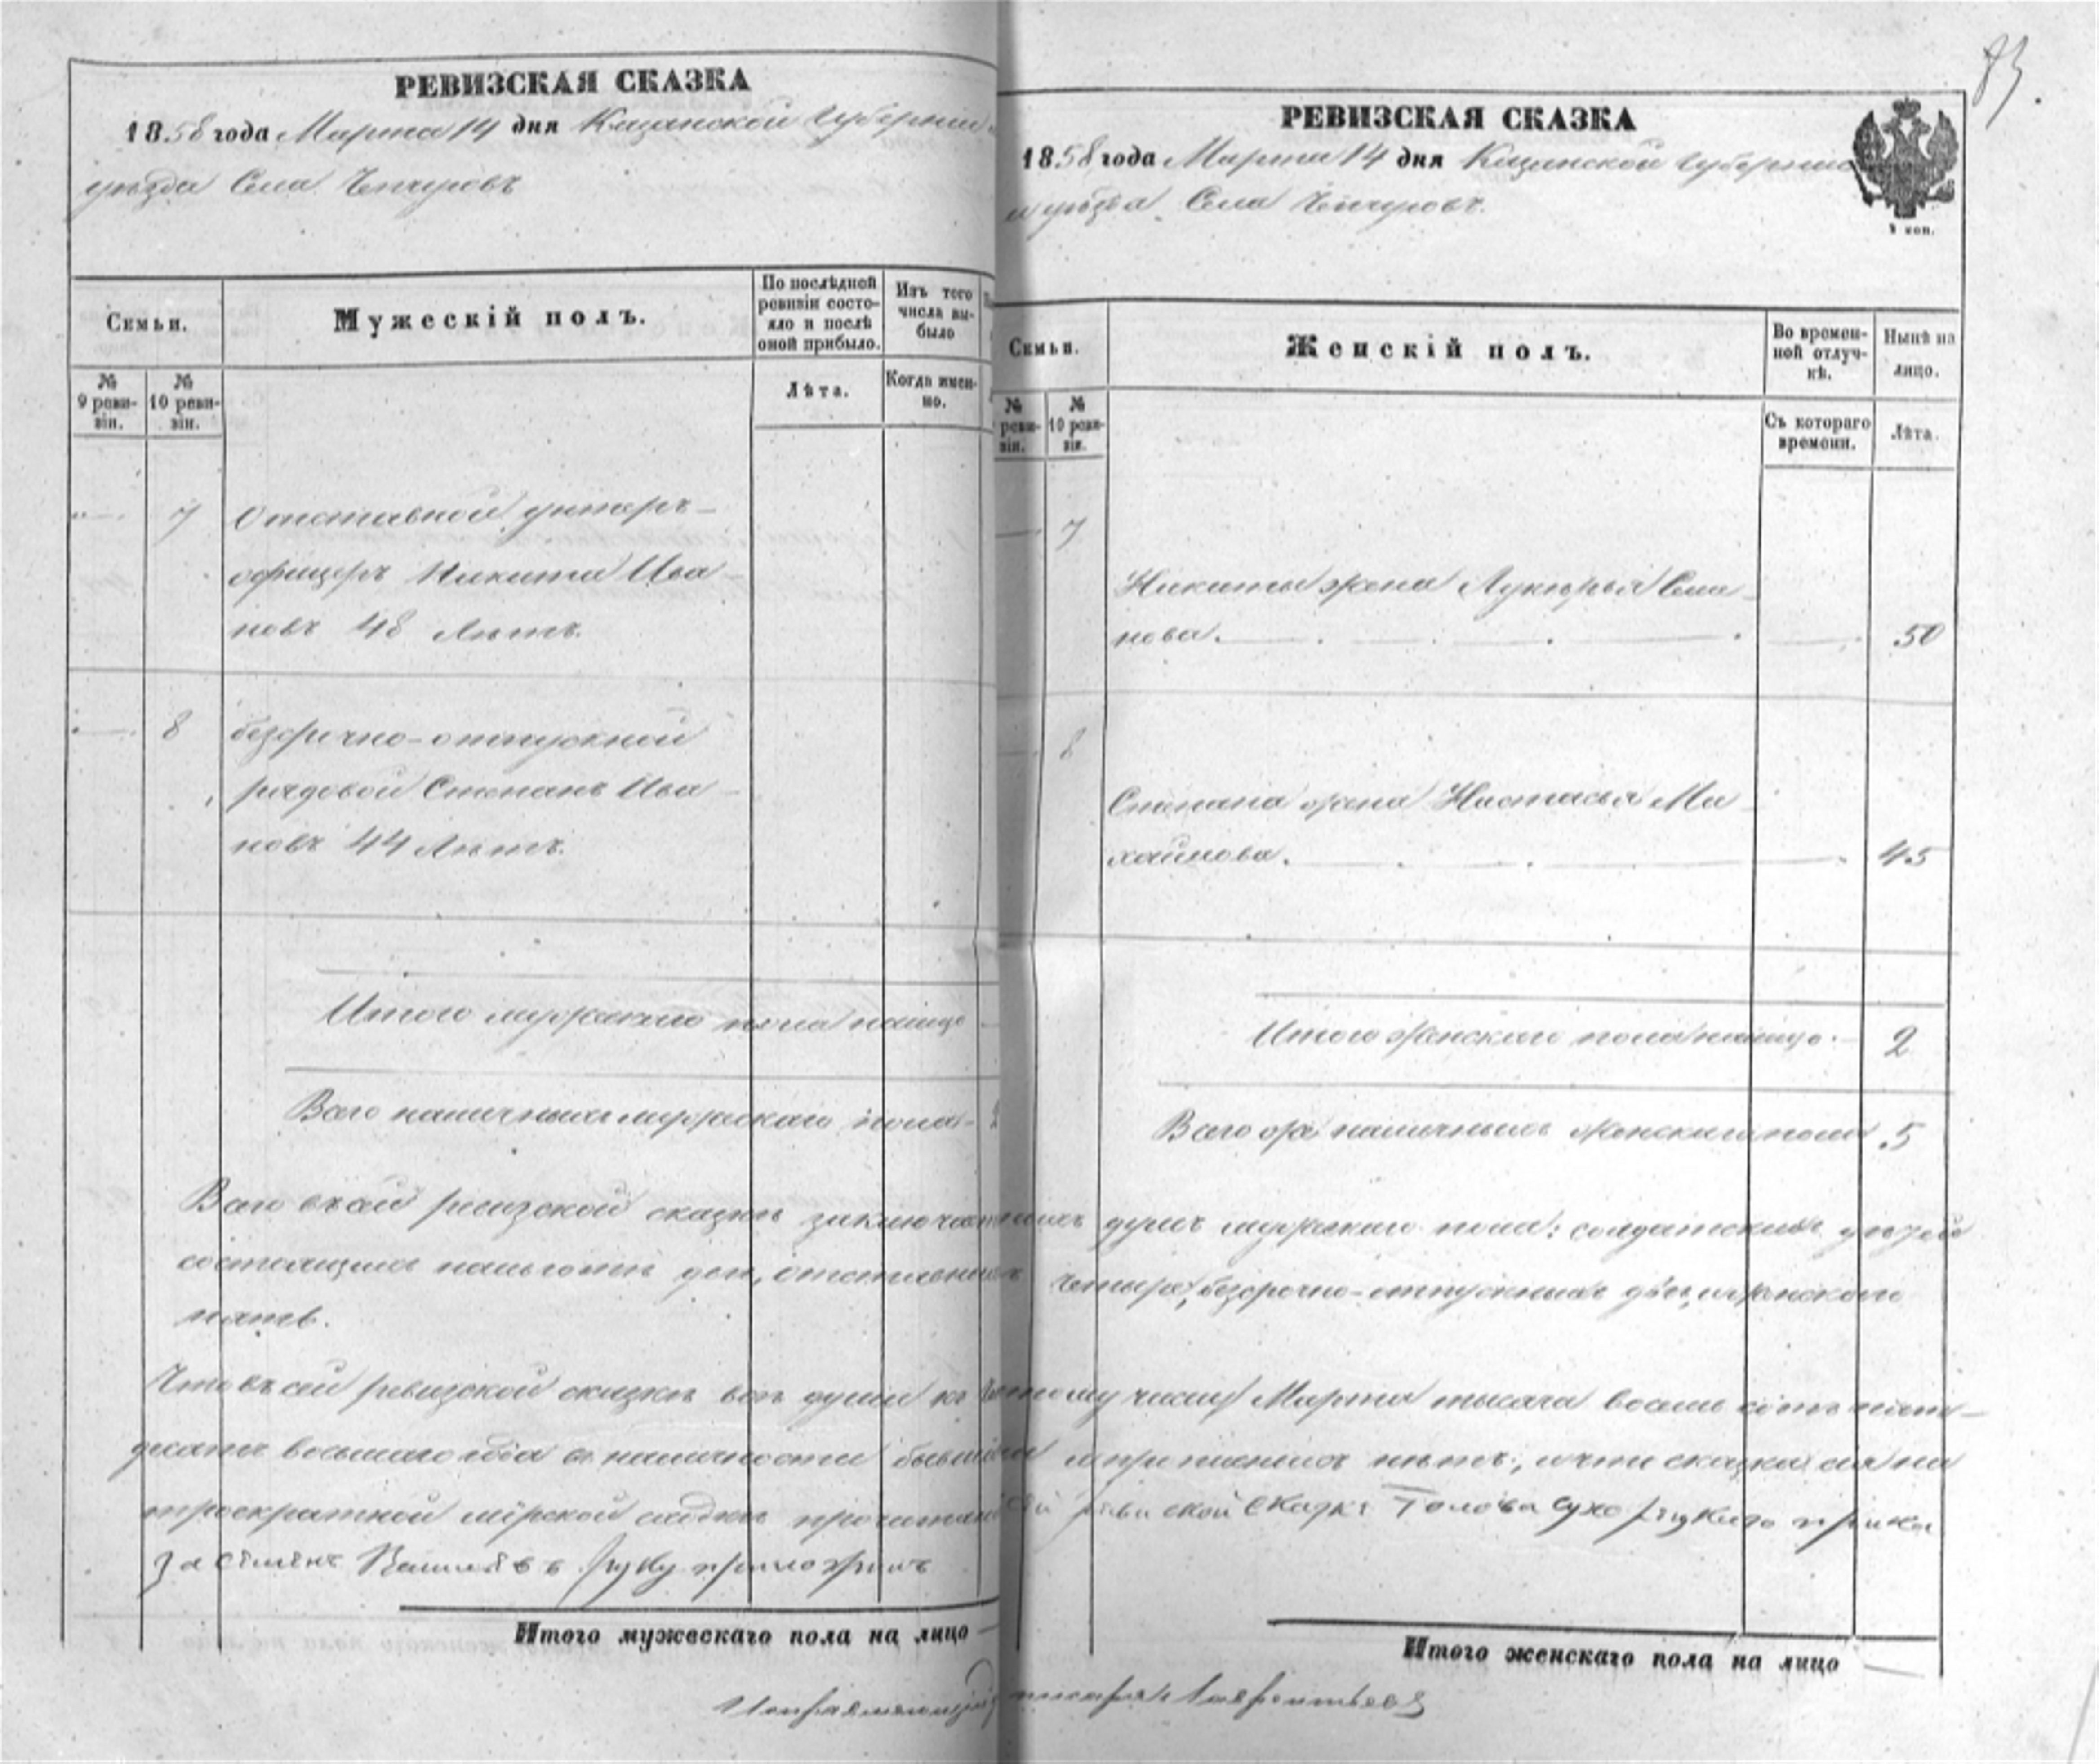 РЕВИЗСКАЯ СКАЗКА
1858 года Марта 14 дня Казанской Губерніи и
уѣзда Села Чепчуровъ
Семьи.
Мужескій полъ.
По послѣдней ревизіи состояло и послѣ оной прибыло.
Изъ того числа выбыло
№ 9 ревизіи.
№ 10 ревизіи.
Лѣта.
Когда именно.
7 Отставной унтеръ-
офицеръ Никита Ива-
новъ 48 Лѣтъ.
8 безсрочно-отпускной
рядовой Степанъ Ива-
новъ 44 Лѣтъ.
Итого мужескаго пола налицо
Всего наличныхъ мужескаго пола
Итого мужескаго пола на лицо
83.
РЕВИЗСКАЯ СКАЗКА
1858 года Марта 14 дня Казанской Губерніи
и уѣзда Села Чепчуровъ.
Семьи.
Женскій полъ.
Во временной отлучкѣ.
Нынѣ на лицо.
№ ревизіи.
№ 10 ревизіи.
Съ котораго времени.
Лѣта.
7
Никиты жена Лукерья Семе-
нова. 50
8
Степана жена Настасья Ми-
хайлова. 45
Итого Женскаго пола налицо. 2
Всего же наличныхъ Женскаго пола 5
Всего въ сей ревизской сказкѣ заключается душъ мужескаго пола: солдатскихъ дѣтей
состоящихъ отставныхъ Четыре, безсрочно-отпускныхъ два, и женского
пять.
Что въ сей ревизской сказкѣ всѣ души къ числу Марта тысяча восемь сотъ пять-
десятъ восьмаго года въ наличности бывшія и нѣтъ, и что сказка сія на
троекратной мірской сходкѣ прочитана сей ревиской сказкѣ Голова прика
за Семенъ руку приложилъ
Итого женскаго пола на лицо
писаря Лаврентьевъ